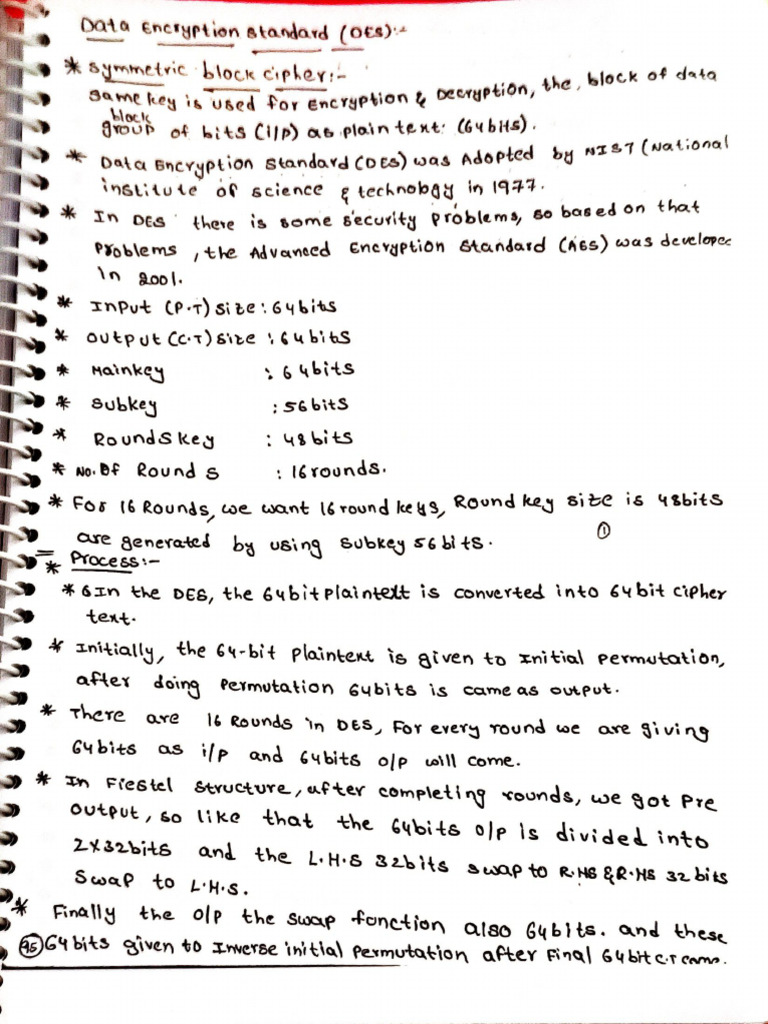 Data Encryption Standard (DES):-
* Symmetric block cipher:-
same key is used for Encryption & Decryption, the, block of data
block
group of bits (i/p) as plain text: (64bits).
* Data Encryption Standard (DES) was Adopted by NIST (National
institute of science & technology in 1977.
* In DES there is some security problems, so based on that
problems, the Advanced Encryption Standard (AES) was develope
in 2001.
* Input (P.T) size : 64bits
* Output (C.T) size : 64bits
* Mainkey : 64bits
* Subkey : 56bits
* Rounds key : 48bits
* No. Of Rounds : 16rounds.
* For 16 Rounds, we want 16 round keys, Round key size is 48bits
①
are generated by using subkey 56bits.
* Process:-
* 6In the DES, the 64bit plaintext is converted into 64bit cipher
text.
* Initially, the 64-bit plaintext is given to Initial permutation,
after doing permutation 64bits is came as output.
* There are 16 Rounds in DES, For every round we are giving
64bits as i/p and 64bits o/p will come.
* In Fiestel structure, after completing rounds, we got pre
output, so like that the 64bits o/p is divided into
2x32bits and the L.H.S 32bits swap to R.HS & R.HS 32 bits
swap to L.H.S.
* Finally the o/p the swap function also 64bits. and these
95 64bits given to Inverse initial permutation after Final 64bit C.T came.